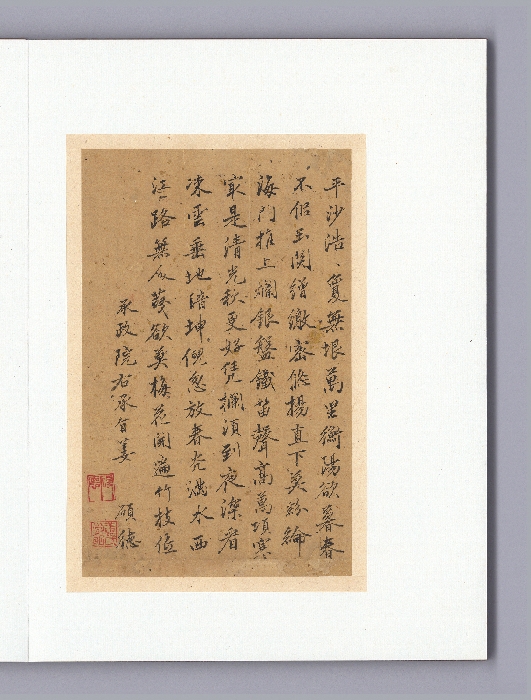 平沙浩、夐無垠萬里衡陽欲暮春
不侶玉関繒繳密悠揚直下莫紛綸
海門推上爛銀盤鐵笛聲高萬頃寒
㝡是清光秋更好凭欄須到夜深看
凍雲垂地暗坤倪忽放春光滿水西
江路無人幾欲莫梅花開遍竹枝低
承政院右承旨姜 碩德